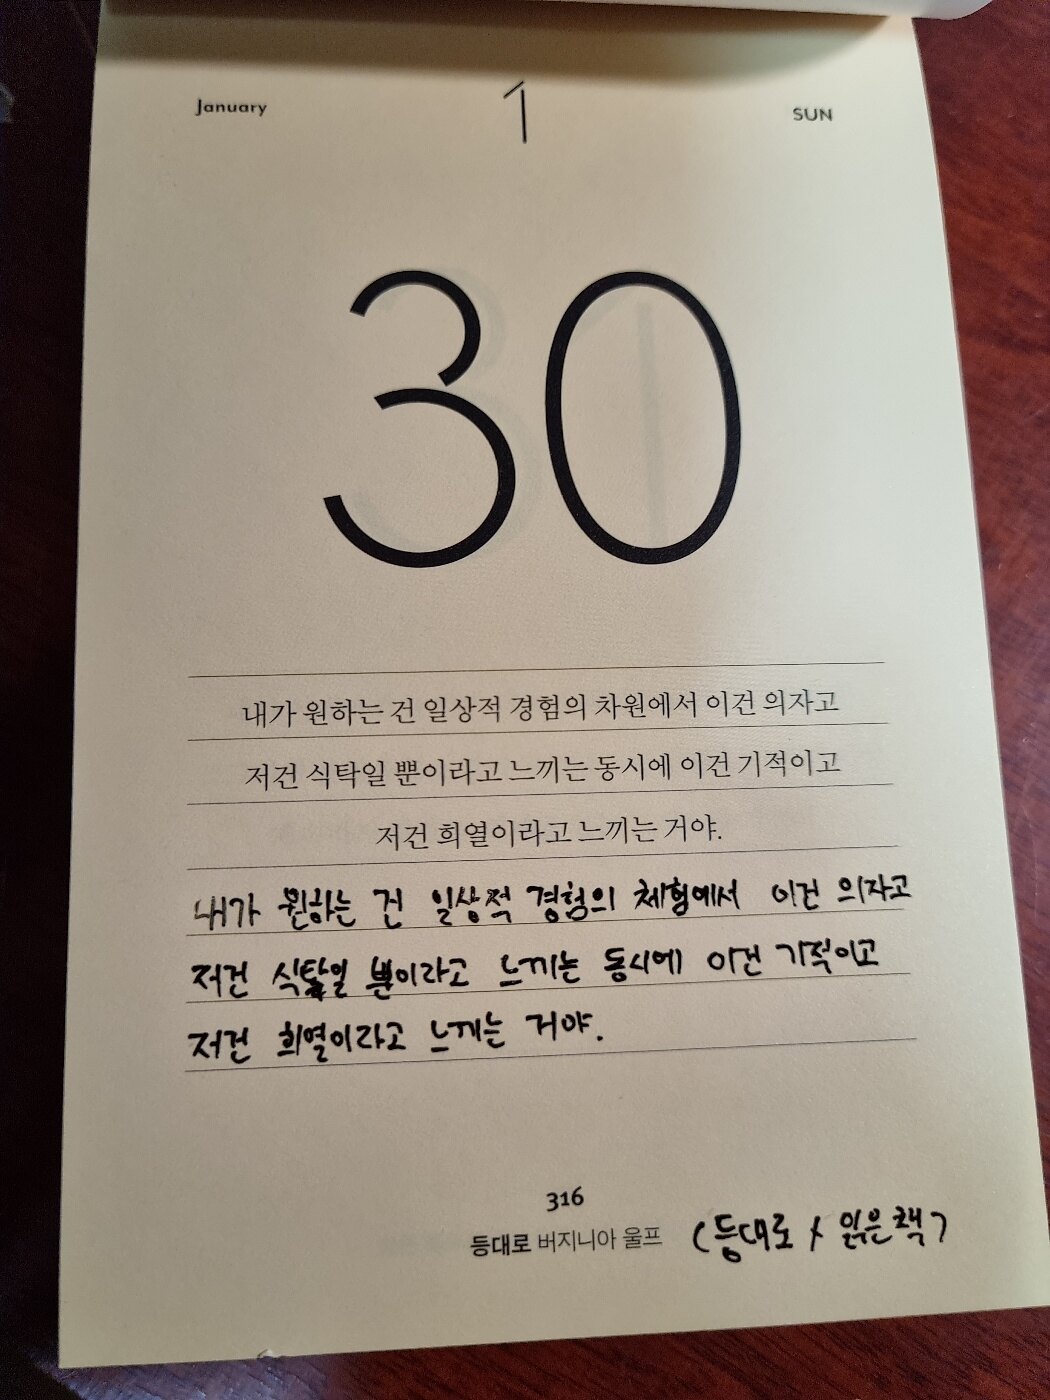 January 1 SUN
30
내가 원하는 건 일상적 경험의 차원에서 이건 의자고
저건 식탁일 뿐이라고 느끼는 동시에 이건 기적이고
저건 희열이라고 느끼는 거야.
내가 원하는 건 일상적 경험의 체험에서 이건 의자고
저건 식탁일 뿐이라고 느끼는 동시에 이건 기적이고
저건 희열이라고 느끼는 거야.
316
등대로 버지니아 울프 (등대로 / 읽은 책)